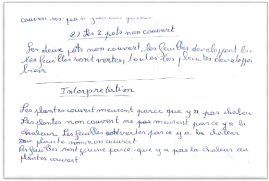 2) Les 2 pots non couvert
Les deux pots non couvert, les feuilles developpent bien
les feuilles sont vertes, toutes les plantes developpe
bien
Interpretation
Les plantes couvert meurent parce que y a pas chaleur
Les plantes non couvert ne pas meurent parce y a la
chaleur Les feuilles sont vertes parce y a la chaleur
plante non couvert
les feuilles sont jaune parce que y a pas la chaleur au
plantes couvert